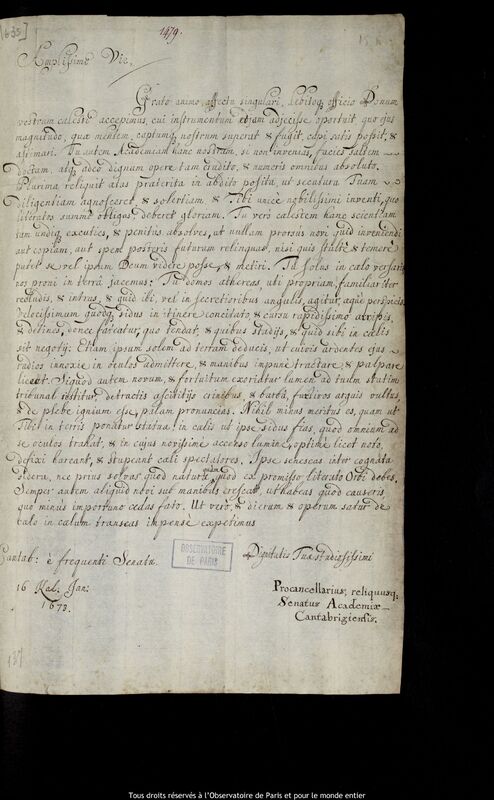 [635]
1479.
Amplissime Vir,
Grato animo, affectu singulari, debitoq officio Donum
vestrum caleste accepimus, cui instrumentum etiam adjecisse oportuit quo ejus
magnitudo, qua mentem, captumq nostrum superat & fugit, capi satis possit, &
æstimari. Tu autem Academiam hanc nostram, si non invenias, facies saltem
Doctam, atq adeo dignam opere tam erudito, & numeris omnibus absoluto.
Plurima reliquit ætas præterita in abdito posita, ut secutura Tuam
Diligentiam agnosceret, & solertiam, & Tibi unicè nobilissimi inventi, quo
literatos summè obligas deberet gloriam. Tu vero calestem hanc scientiam
tam undiq excuties, & penitus absolves, ut nullam prorsus novi quid inveniendi
aut copiam, aut spem posteris futuram relinquas, nisi quis stultè & temerè
putet se vel ipsum Deum videre posse, & metiri. Tu solus in cælo versaris
nos proni in terra jacemus: Tu domos æthereas, uti proprias, familiariter
recludis, & intras, & quid ibi, vel in secretioribus angulis, agitur, aquè perspicis
Velocissimum quodq sidus in itinere concitato, & cursu rapidissimo arripis
& detines, donec fateatur, quo tendat, & quibus stadijs, & quid sibi in cælis
sit negotij: Etiam ipsum solem ad terram deducis, ut cuivis ardentes ejus
radios innoxiè in oculos admittere, & manibus impunè tractare & palpare
liceat. Siquod autem novum, & fortuitum exoriatur lumen ad tuum statim
tribunal sistitur, detractis ascititijs crinibus, & barba, furtivos arguis vultus,
& de plebe ignium esse, palam pronuncias. Nihil minus meritus es, quam ut
Tibi in terris ponatur statua, in cælis ut ipse sidus fias, quod omnium ad
se oculos trahat, & in cujus novissimè accenso lumine, optimè licet noto,
defixi hæreant, & stupeant cæli spectatores. Ipse senescas inter cognata
sidera, nec prius solvas quod naturæ, quam quod ex promisso literato Orbi debes.
Semper autem aliquid novi sub manibus crescat, ut habeas quod causeris,
quo minus importuno cedas fato. Ut vero & dierum & operum satur de
cælo in cælum transeas impensè expetimus
Cantab: è frequenti Senatu
Dignitatis Tuæ studiosissimi
16 Kal. Jan:
1673.
Procancellarius, reliquusq;
Senatus Academiæ
Cantabrigiensis.
OBSERVATOIRE
DE PARIS
137
Tous droits réservés à l'Observatoire de Paris et pour le monde entier